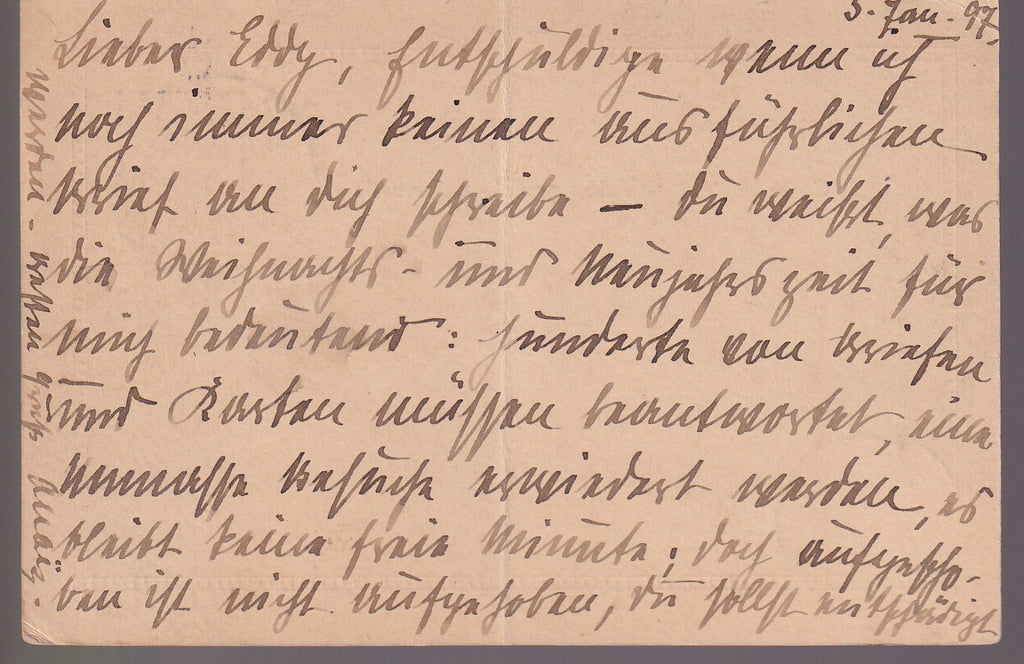 3. Jan. 97.
Lieber Eddy, Entschuldige wenn ich
noch immer keinen ausführlichen
Brief an Dich schreibe – Du weißt, was
die Weihnachts- und Neujahrszeit für
mich bedeutend: Hunderte von Briefen
und Karten müssen beantwortet, eine
Unmasse Besuche erwiedert werden, es
bleibt keine freie Minute; doch aufgescho-
ben ist nicht aufgehoben, Du sollst entschädigt
werden – besten Gruß